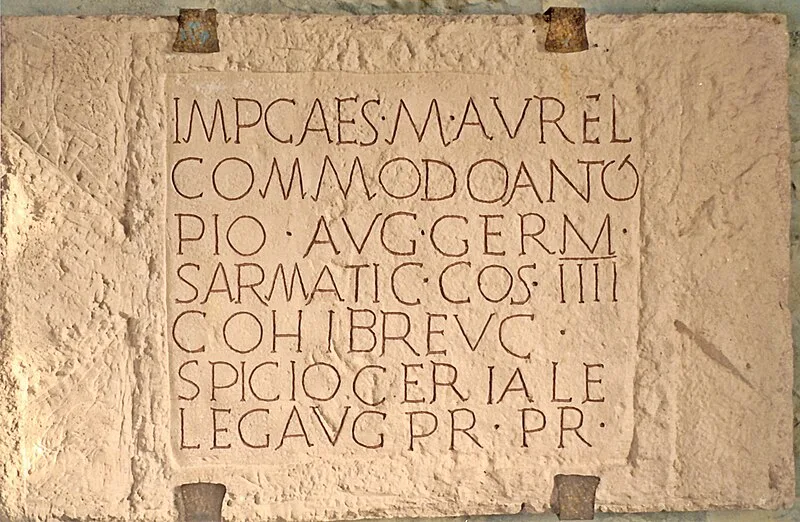 IMPCAES·M·AVREL
COMMODOANTO
PIO · AVG·GERM·
SARMATIC·COS·IIII
COH IBREVC ·
SPICIO·CERIALE
LEGAVG PR·PR·